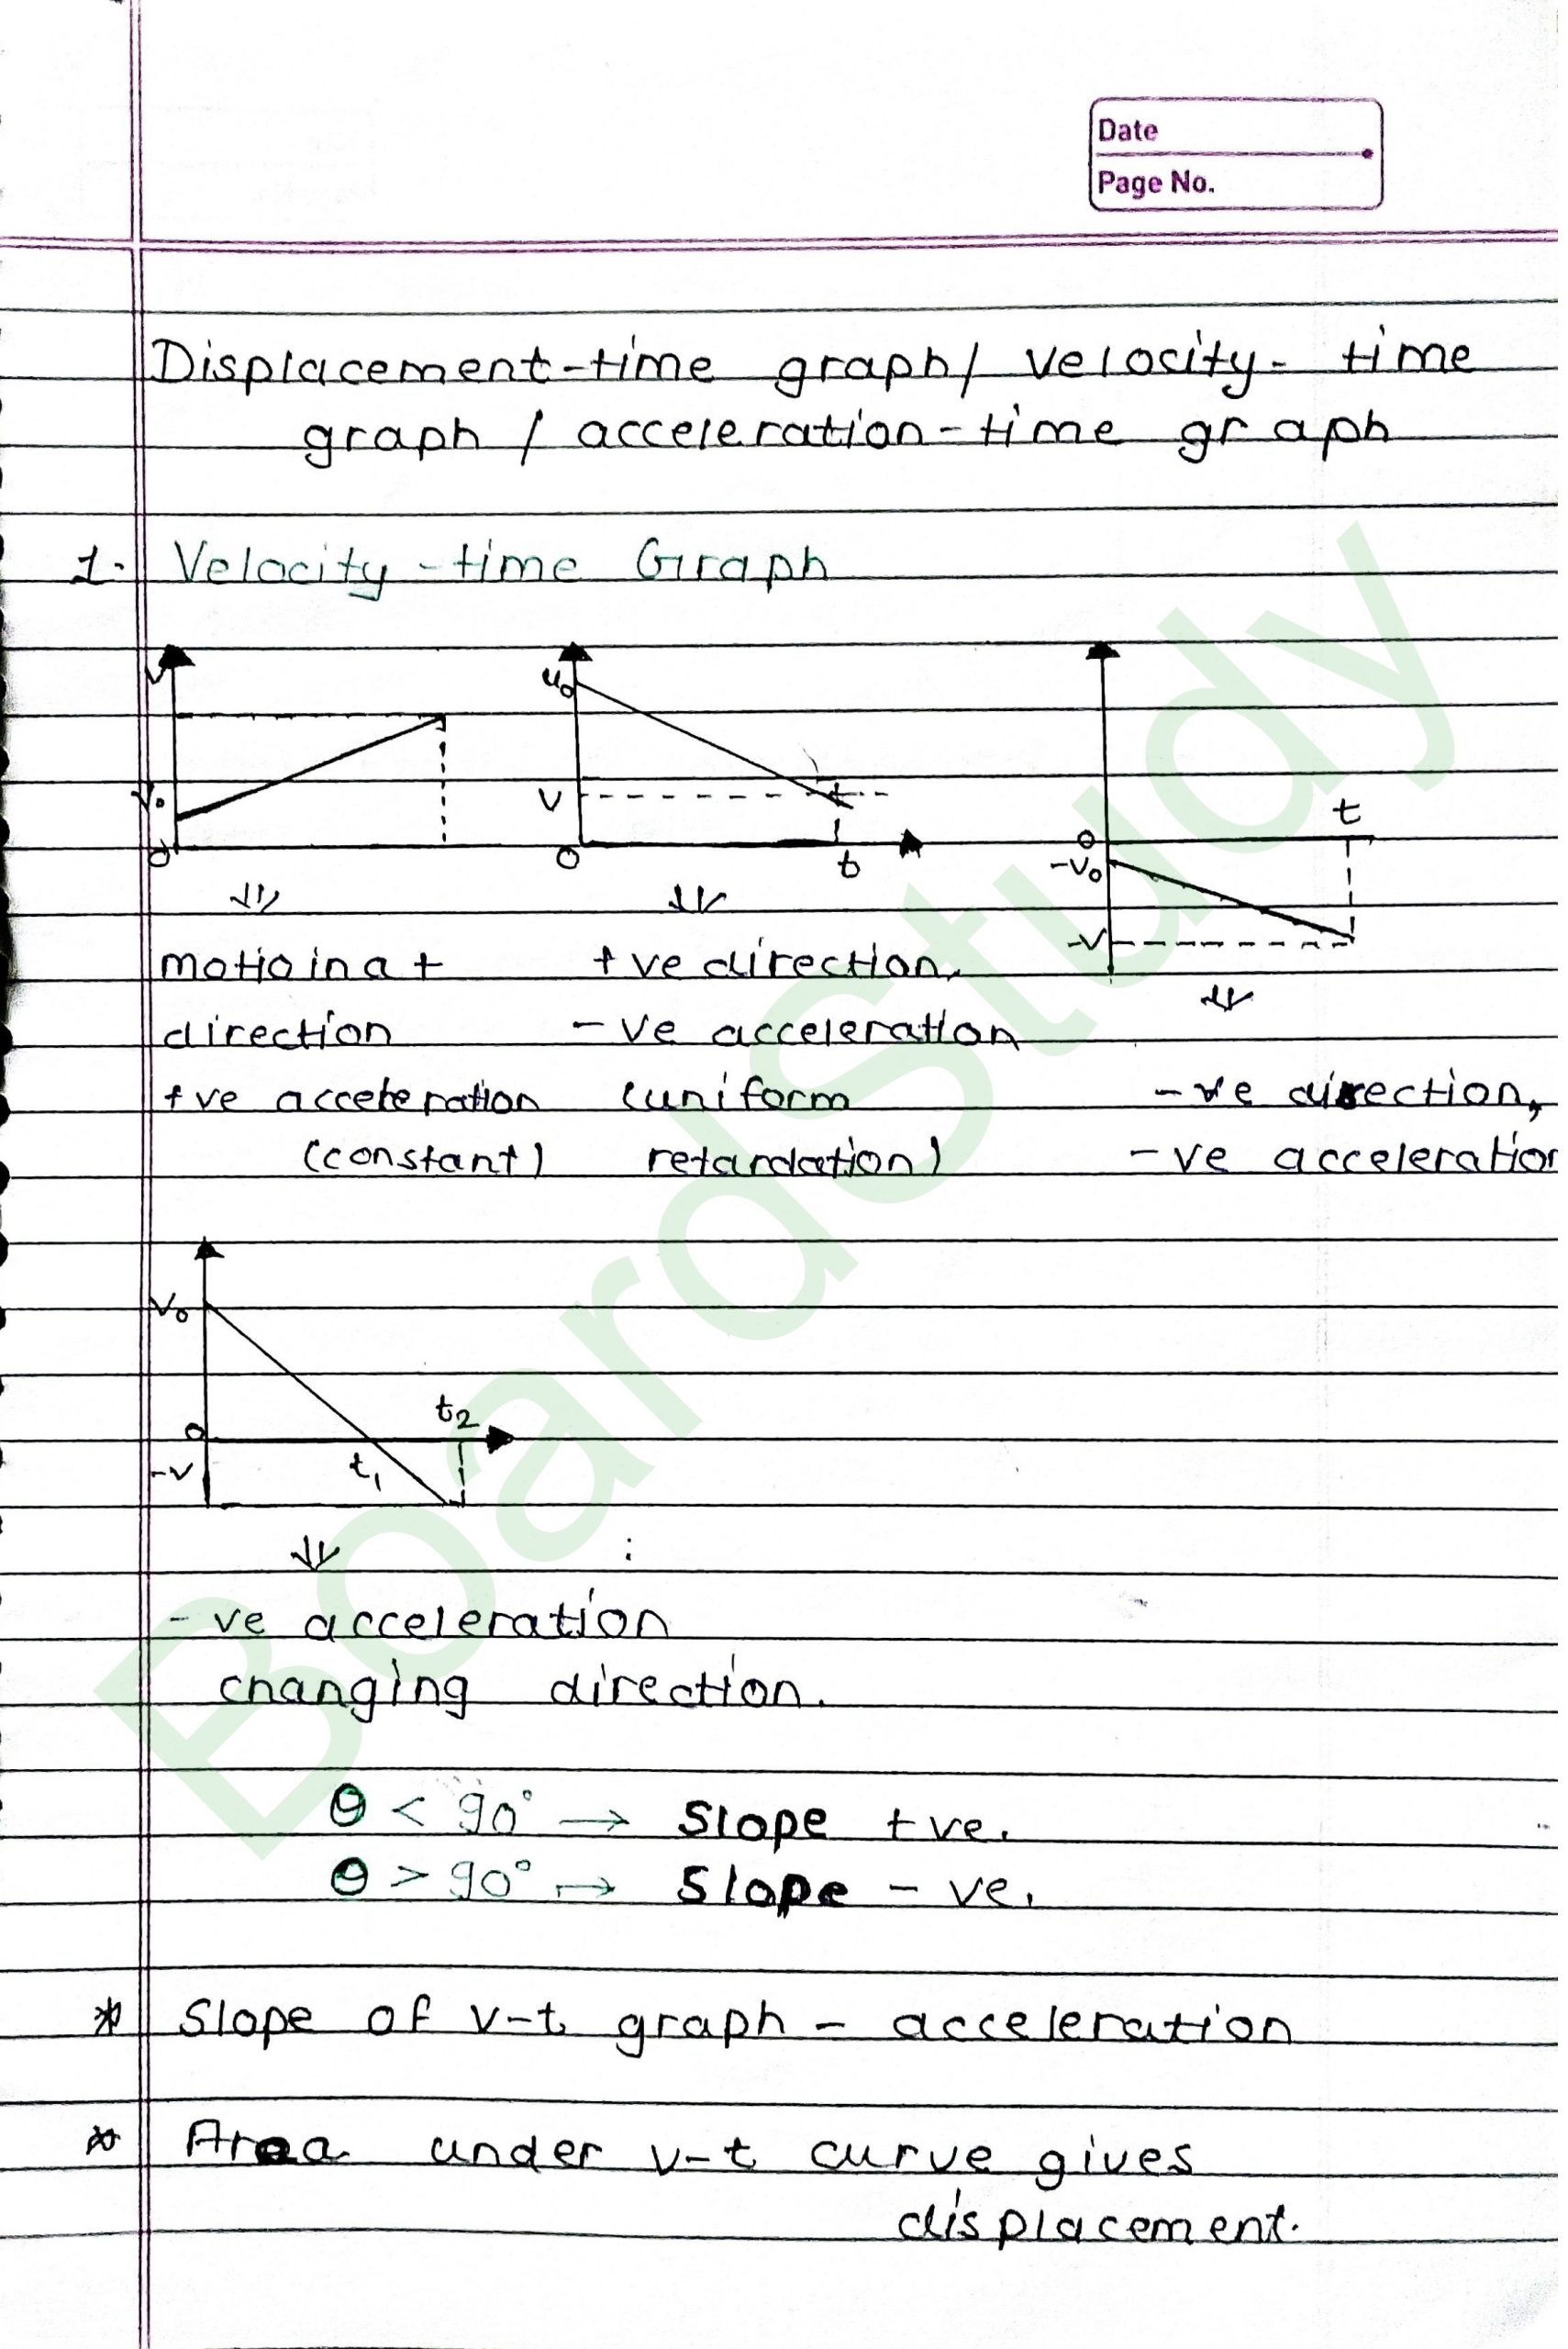 Date
Page No.
Displacement-time graph/ velocity- time
graph / acceleration-time graph
1. Velocity-time Graph
V
V₀
0
u₀
V
0
t
t
0
-V₀
-V
motio in a +
direction
+ve acceleration
(constant)
+ve direction,
-ve acceleration
(uniform
retardation)
-ve direction,
-ve acceleration
V₀
0
-V
t₁
t₂
-ve acceleration
changing direction.
θ < 90° → Slope +ve.
θ > 90° → Slope -ve.
* Slope of v-t graph - acceleration
* Area under v-t curve gives
displacement.
BoardStudy